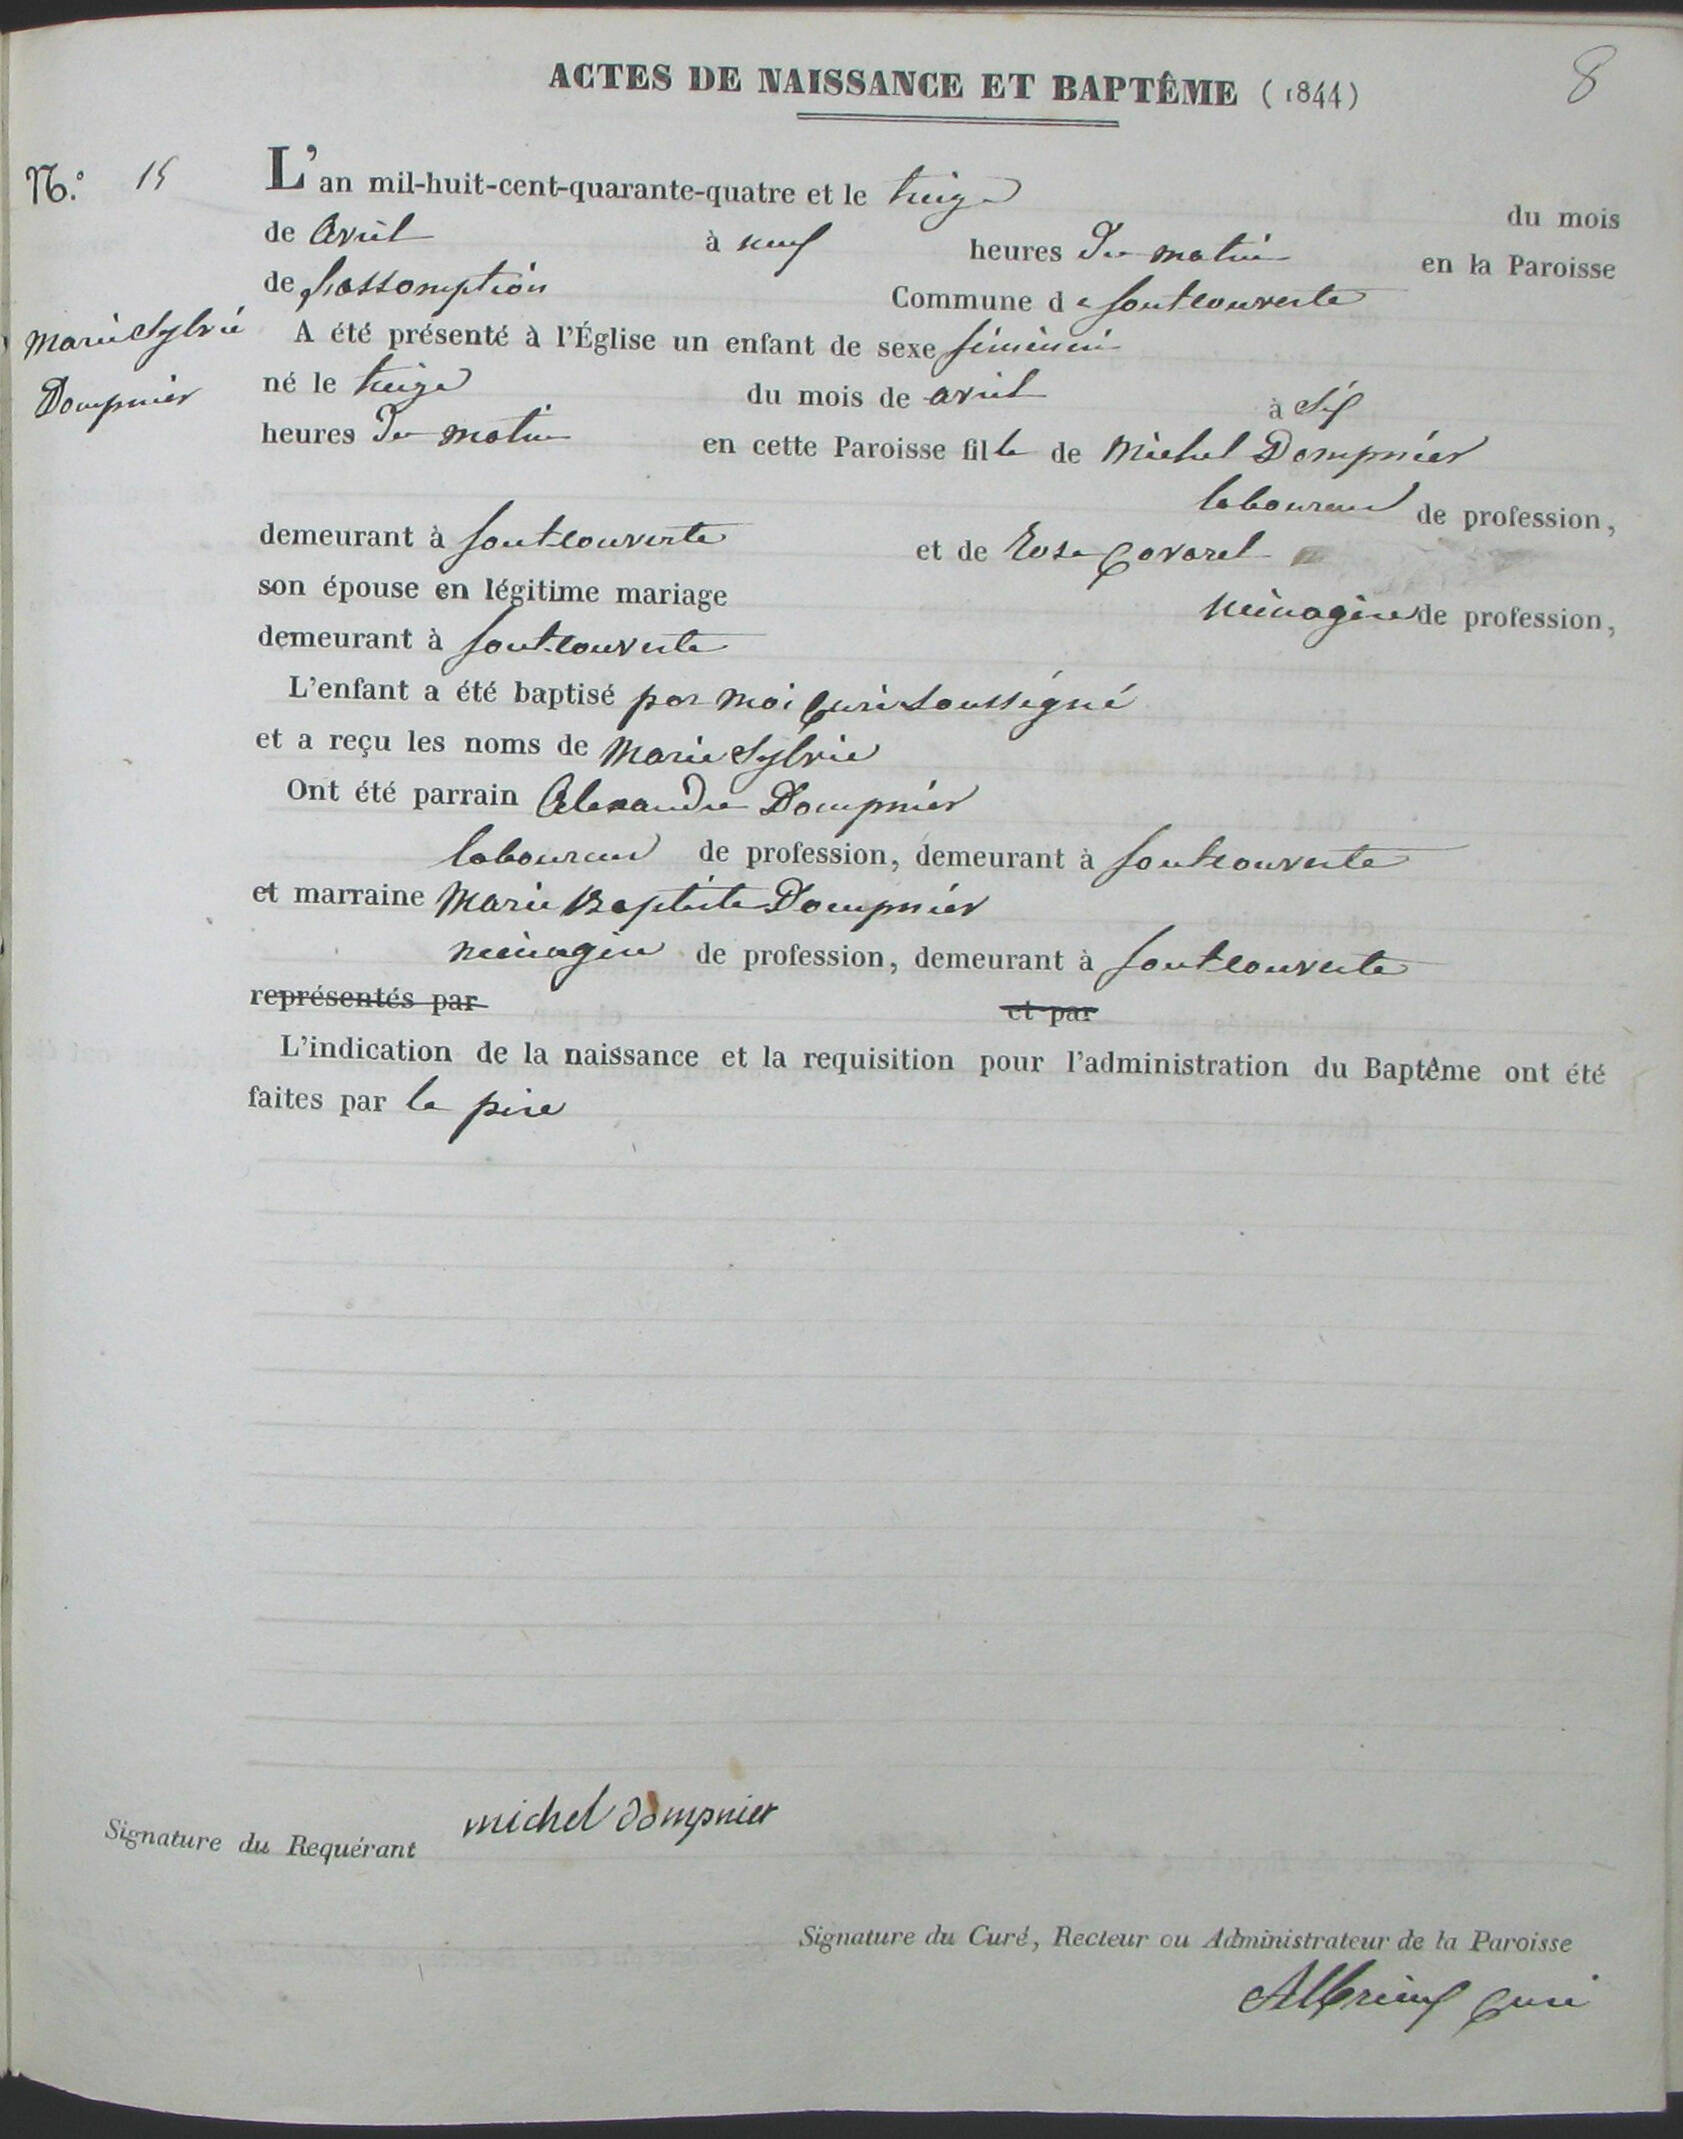 ACTES DE NAISSANCE ET BAPTÊME (1844)
8
N.º 15
L'an mil-huit-cent-quarante-quatre et le treize du mois
de avril à neuf heures du matin en la Paroisse
de l'assomption Commune de fontcouverte
Marie Sylvie
Dompnier
A été présenté à l'Église un enfant de sexe féminin
né le treize du mois de avril à
heures du matin en cette Paroisse fille de Michel Dompnier
laboureur de profession,
demeurant à fontcouverte et de Rose Covarel
son épouse en légitime mariage
ménagère de profession,
demeurant à fontcouverte
L'enfant a été baptisé par moi Curé soussigné
et a reçu les noms de Marie Sylvie
Ont été parrain Alexandre Dompnier
laboureur de profession, demeurant à fontcouverte
et marraine Marie Baptiste Dompnier
ménagère de profession, demeurant à fontcouverte
représentés par et par
L'indication de la naissance et la requisition pour l'administration du Baptême ont été
faites par le père
Signature du Requérant michel dompnier
Signature du Curé, Recteur ou Administrateur de la Paroisse
Curé